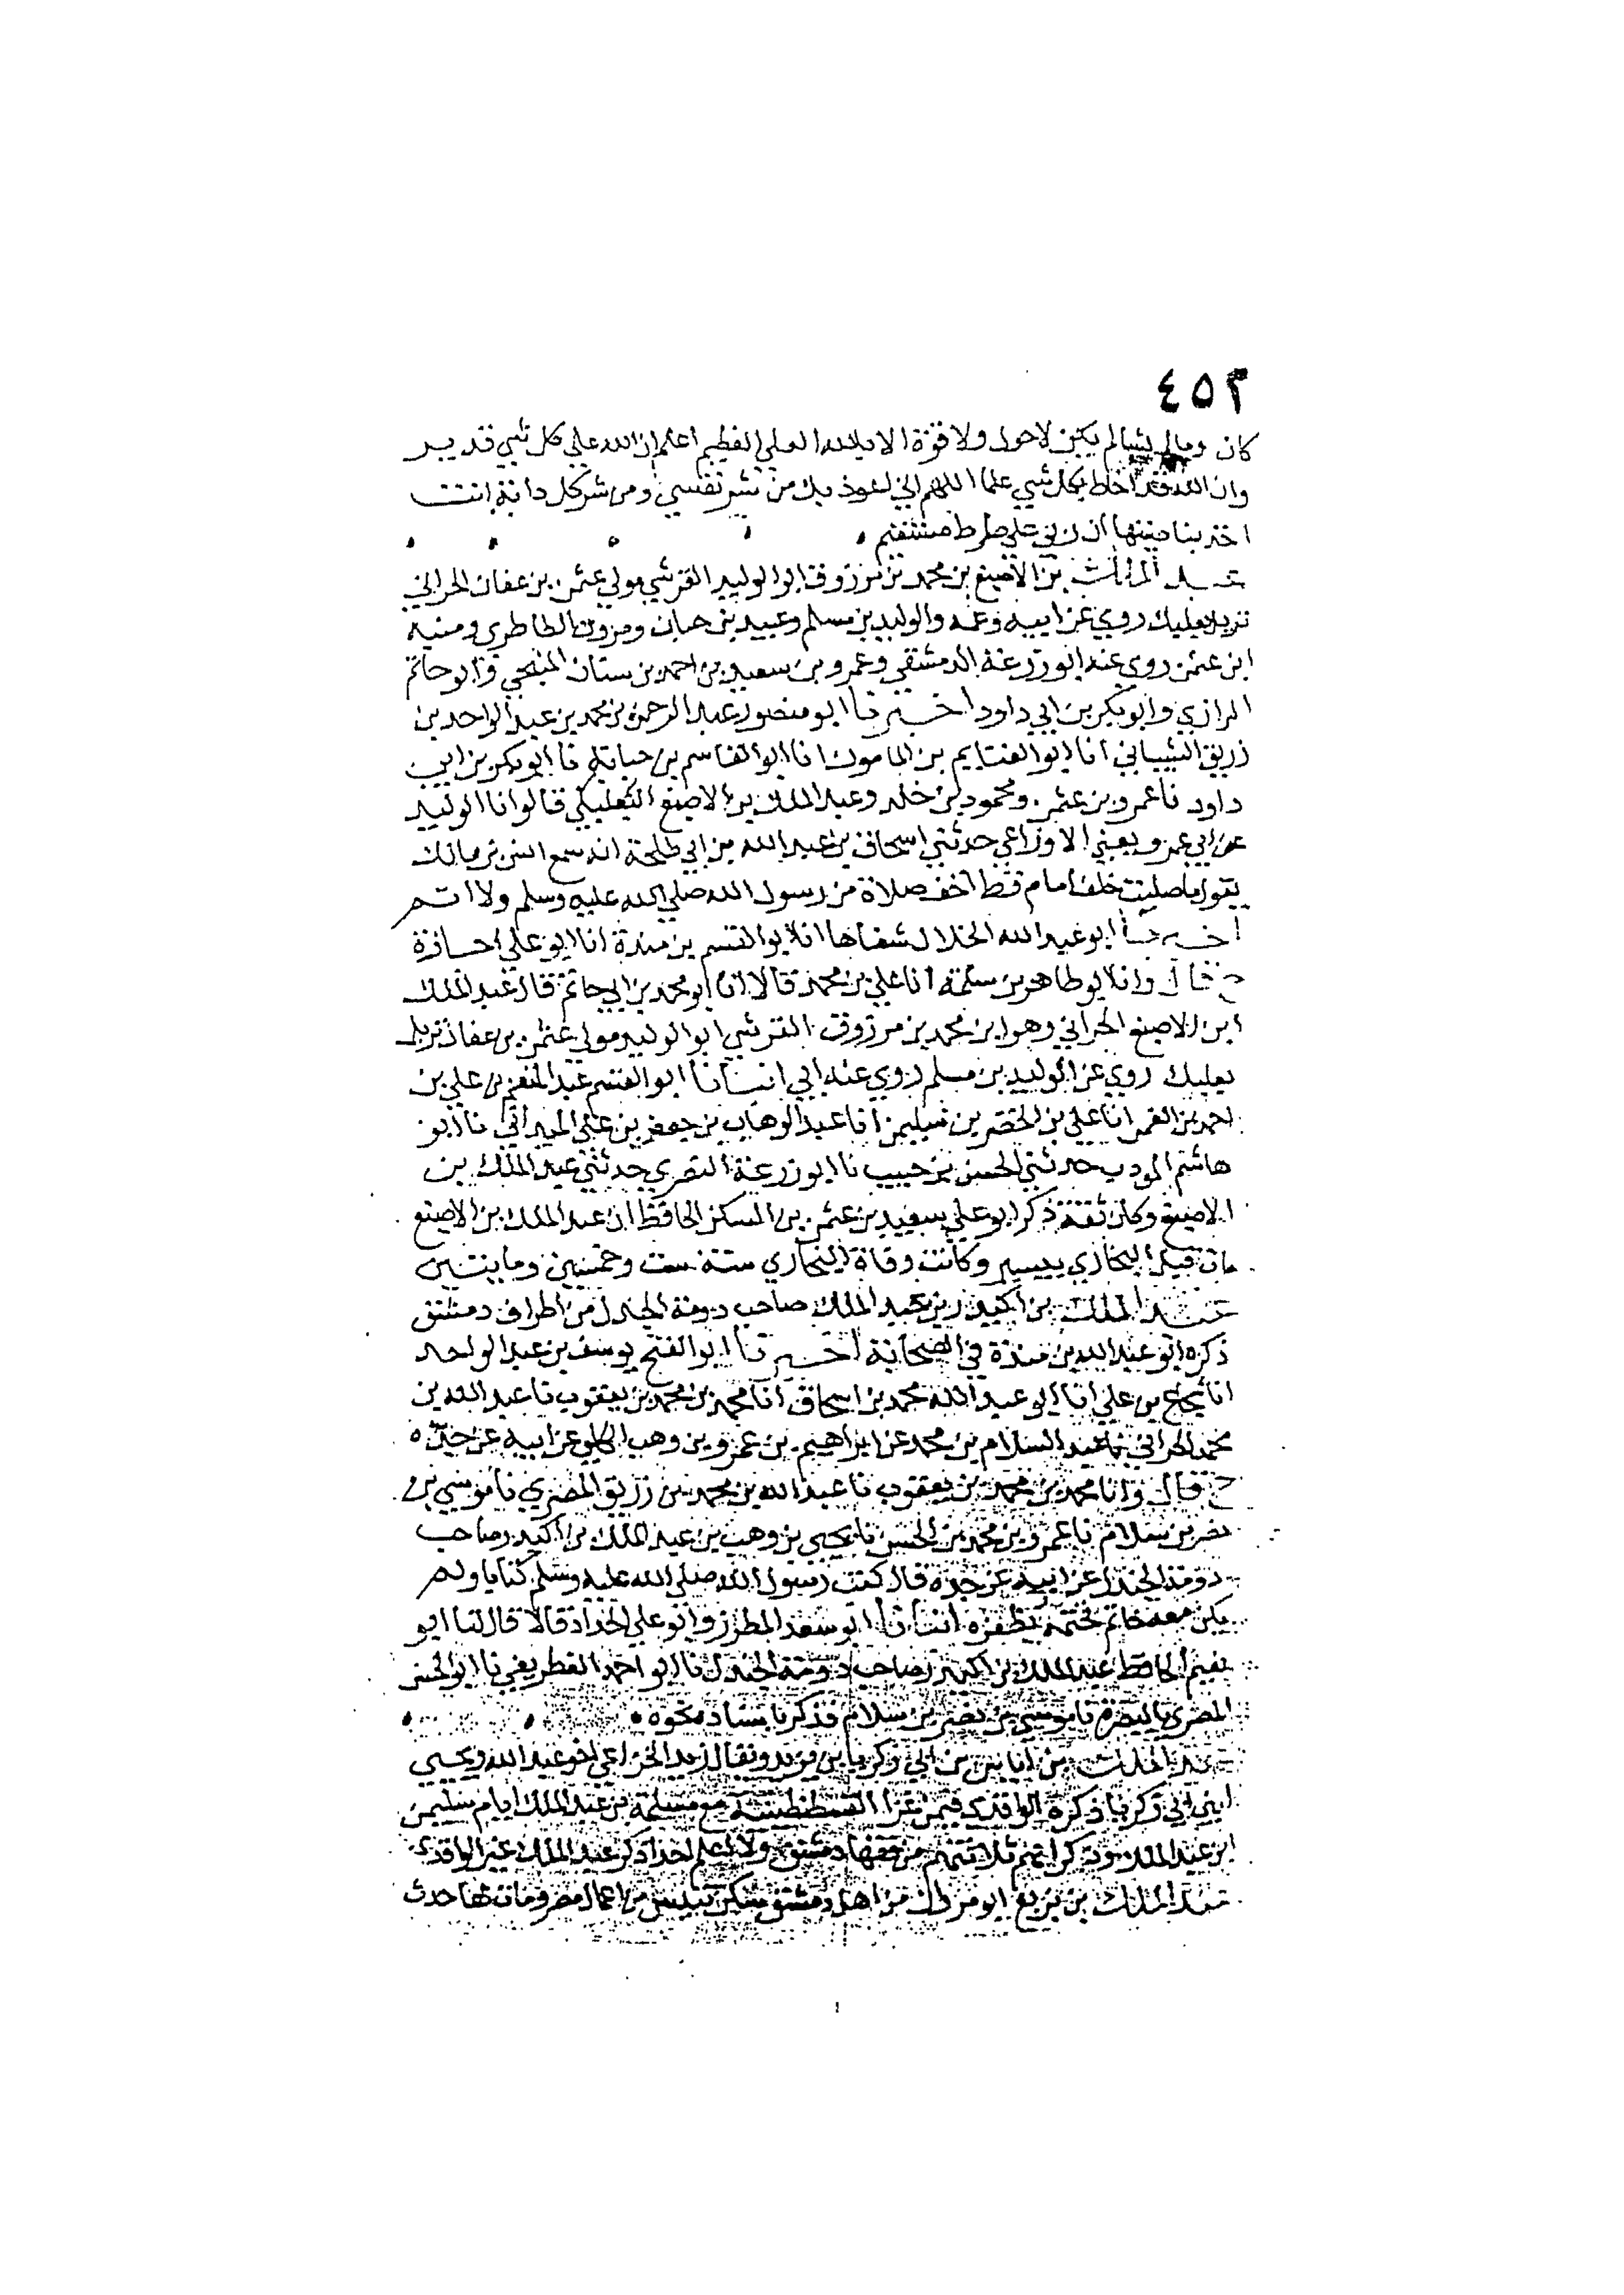 ٤٥٢
كان وما لم يشا لم يكن لا حول ولا قوة الا بالله العلي العظيم اعلم ان الله علي كل شي قدير
وان الله قد احاط بكل شي علما اللهم اني اعوذ بك من شر نفسي ومن شر كل دابة انت
اخذ بناصيتها ان ربي علي صراط مستقيم
عبد الملك بن الاصبغ بن محمد بن مرزوق ابو الوليد القرشي مولي عثمن بن عفان الحراني
نزيل بعلبك روي عن ابيه وعمه والوليد بن مسلم وعبيد بن حبان ومروان الطاطري ومنبه
ابن عثمن روي عنه ابو زرعة الدمشقي وعمرو بن سعيد بن احمد بن سنان المنبجي وابو حاتم
الرازي وابو بكر بن ابي داود اخبرنا ابو منصور عبد الرحمن بن محمد بن عبد الواحد بن
زريق الشيباني انا ابو الغنايم بن المامون انا ابو القاسم بن حبابة نا ابو بكر بن ابي
داود نا عمرو بن عثمن ومحمود بن خلد وعبد الملك بن الاصبغ البعلبكي قالوا نا الوليد
عن ابي عمرو يعني الاوزاعي حدثني اسحاق بن عبد الله بن ابي طلحة انه سمع انس بن مالك
يقول ما صليت خلف امام قط اخف صلاة من رسول الله صلي الله عليه وسلم ولا اتم
اخبرنا ابو عبد الله الخلال شفاها انا ابو القسم بن مندة انا ابو علي اجازة
ح قال وانا ابو طاهر بن سلمة انا علي بن محمد قالا انا ابو محمد بن ابي حاتم قال عبد الملك
ابن الاصبغ الحراني وهو ابن محمد بن مرزوق القرشي ابو الوليد مولي عثمن بن عفان نزيل
بعلبك روي عن الوليد بن مسلم روي عنه ابي انبانا ابو القسم عبد المنعم بن علي بن
احمد بن الغمر انا علي بن الخضر بن سليمن انا عبد الوهاب بن جعفر بن علي الميداني نا ابو
هاشم المودب حدثني الحسن بن حبيب نا ابو زرعة النصري حدثني عبد الملك بن
الاصبغ وكان ثقة ذكر ابو علي سعيد بن عثمن بن السكن الحافظ ان عبد الملك بن الاصبغ
مات قبل البخاري بيسير وكانت وفاة البخاري سنة ست وخمسين ومايتين
عبد الملك بن اكيدر بن عبد الملك صاحب دومة الجندل من اطراف دمشق
ذكره ابو عبد الله بن مندة في الصحابة اخبرنا ابو الفتح يوسف بن عبد الواحد
انا شجاع بن علي انا ابو عبد الله محمد بن اسحاق انا محمد بن محمد بن يعقوب نا عبد الله بن
محمد الحراني نا عبد السلام بن محمد عن ابراهيم بن عمرو بن وهب الكلبي عن ابيه عن جده
ح قال وانا محمد بن محمد بن يعقوب نا عبد الله بن محمد بن زريق المصري نا موسي بن
نصر بن سلام نا عمرو بن محمد بن الحسن نا يحيي بن وهب بن عبد الملك بن اكيدر صاحب
دومة الجندل عن ابيه عن جده قال كتب رسول الله صلي الله عليه وسلم كتابا ولم
يكن معه خاتم فختمه بظفره انبانا ابو سعد المطرز وابو علي الحداد قالا قال لنا ابو
نعيم الحافظ عبد الملك بن اكيدر صاحب دومة الجندل نا ابو احمد الغطريفي نا ابو الحسن
المصري بالبصرة نا موسي بن نصر بن سلام فذكر باسناده نحوه
عبد الملك بن اياس بن ابي زكريا بن يزيد ويقال زيد الخزاعي اخو عبد الله ويحيي
ابني ابي زكريا ذكره الواقدي فيمن غزا القسطنطينية مع مسلمة بن عبد الملك ايام سليمن
ابن عبد الملك وذكر انهم ثلاثتهم من فقها دمشق ولا اعلم احدا ذكر عبد الملك غير الواقدي
عبد الملك بن بزيع ابو مروان من اهل دمشق سكن تنيس من اعمال مصر ومات بها حدث